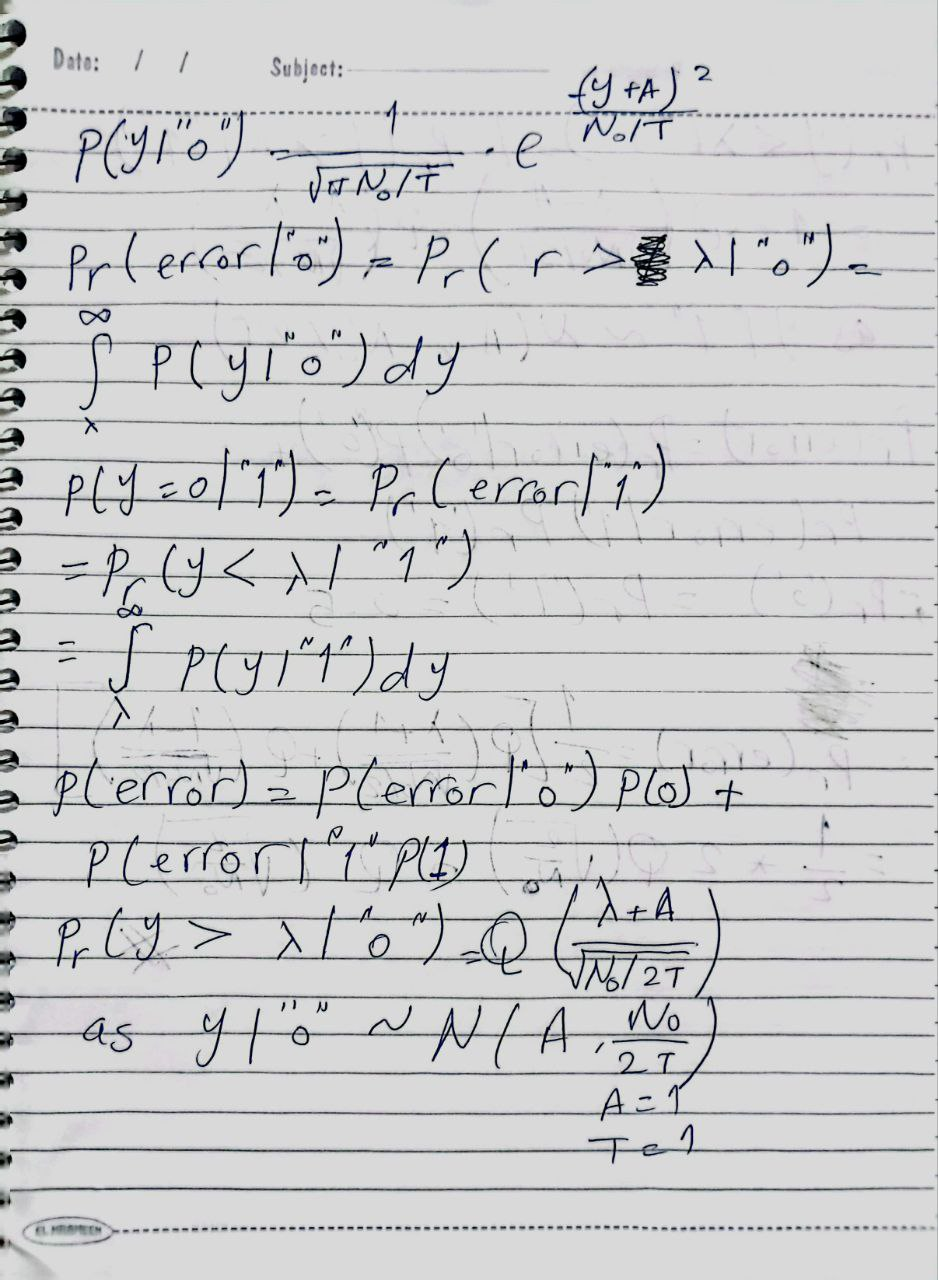 Date: / / Subject:
P(y|"0") = 1/√(πN₀/T) · e^(-(y+A)²/(N₀/T))
Pr(error|"0") = Pr(r > λ|"0") =
∫_λ^∞ P(y|"0")dy
P(y=0|"1") = Pr(error|"1")
= Pr(y < λ|"1")
= ∫_λ^∞ P(y|"1")dy
P(error) = P(error|"0") P(0) +
P(error|"1" P(1)
Pr(y > λ|"0") = Q((λ+A)/√(N₀/2T))
as y|"0" ~ N(A, N₀/2T)
A=1
T=1